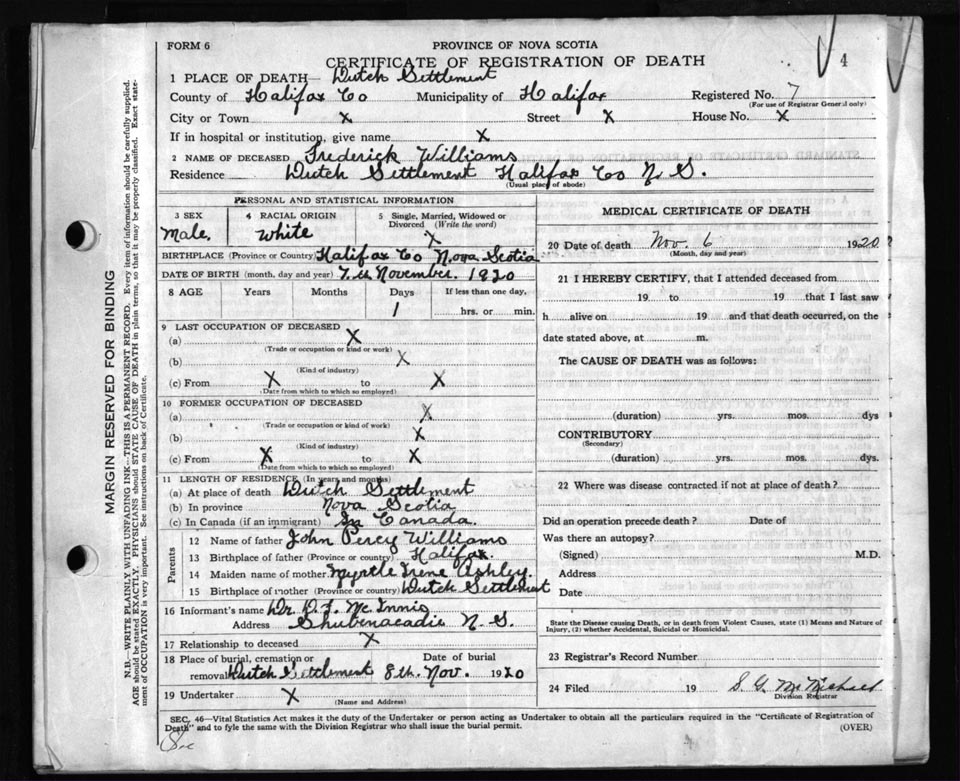 FORM 6
PROVINCE OF NOVA SCOTIA
CERTIFICATE OF REGISTRATION OF DEATH
4
1 PLACE OF DEATH— Dutch Settlement
County of Halifax Co Municipality of Halifax Registered No. 7
(For use of Registrar General only)
City or Town X Street X House No. X
If in hospital or institution, give name X
2 NAME OF DECEASED Frederick Williams
Residence Dutch Settlement Halifax Co N. S.
(Usual place of abode)
PERSONAL AND STATISTICAL INFORMATION
3 SEX 4 RACIAL ORIGIN 5 Single, Married, Widowed or Divorced (Write the word)
Male. White X
BIRTHPLACE (Province or Country) Halifax Co Nova Scotia
DATE OF BIRTH (month, day and year) 7th November. 1920
8 AGE Years Months Days If less than one day,
1 hrs. or min.
9 LAST OCCUPATION OF DECEASED
(a) X
(Trade or occupation or kind or work)
(b) X
(Kind of industry)
(c) From X to X
(Date from which to which so employed)
10 FORMER OCCUPATION OF DECEASED
(a) X
(Trade or occupation or kind of work)
(b) X
(Kind of industry)
(c) From X to X
(Date from which to which so employed)
11 LENGTH OF RESIDENCE (In years and months)
(a) At place of death Dutch Settlement
(b) In province Nova Scotia
(c) In Canada (if an immigrant) In Canada.
Parents
12 Name of father John Percy Williams
13 Birthplace of father (Province or country) Halifax.
14 Maiden name of mother Myrtle Irene Ashley.
15 Birthplace of mother (Province or country) Dutch Settlement
16 Informant's name Dr. D. F. McInnis
Address Shubenacadie N. S.
17 Relationship to deceased X
18 Place of burial, cremation or removal Dutch Settlement Date of burial 8th. Nov. 1920
19 Undertaker X
(Name and Address)
MEDICAL CERTIFICATE OF DEATH
20 Date of death Nov. 6 1920
(Month, day and year)
21 I HEREBY CERTIFY, that I attended deceased from
19 to 19 that I last saw
h alive on 19 and that death occurred, on the
date stated above, at m.
The CAUSE OF DEATH was as follows:
(duration) yrs. mos. dys
CONTRIBUTORY
(Secondary)
(duration) yrs. mos. dys.
22 Where was disease contracted if not at place of death?
Did an operation precede death? Date of
Was there an autopsy?
(Signed) M.D.
Address
Date
State the Disease causing Death, or in death from Violent Causes, state (1) Means and Nature of
Injury, (2) whether Accidental, Suicidal or Homicidal.
23 Registrar's Record Number
24 Filed 19 S. G. McMichael
Division Registrar
SEC. 46—Vital Statistics Act makes it the duty of the Undertaker or person acting as Undertaker to obtain all the particulars required in the "Certificate of Registration of
Death" and to fyle the same with the Division Registrar who shall issue the burial permit.
(OVER)
MARGIN RESERVED FOR BINDING
N.B.—WRITE PLAINLY WITH UNFADING INK—THIS IS A PERMANENT RECORD. Every item of information should be carefully supplied.
AGE should be stated EXACTLY. PHYSICIANS should STATE CAUSE OF DEATH in plain terms, so that it may be properly classified. Exact state-
ment of OCCUPATION is very important. See instructions on back of Certificate.